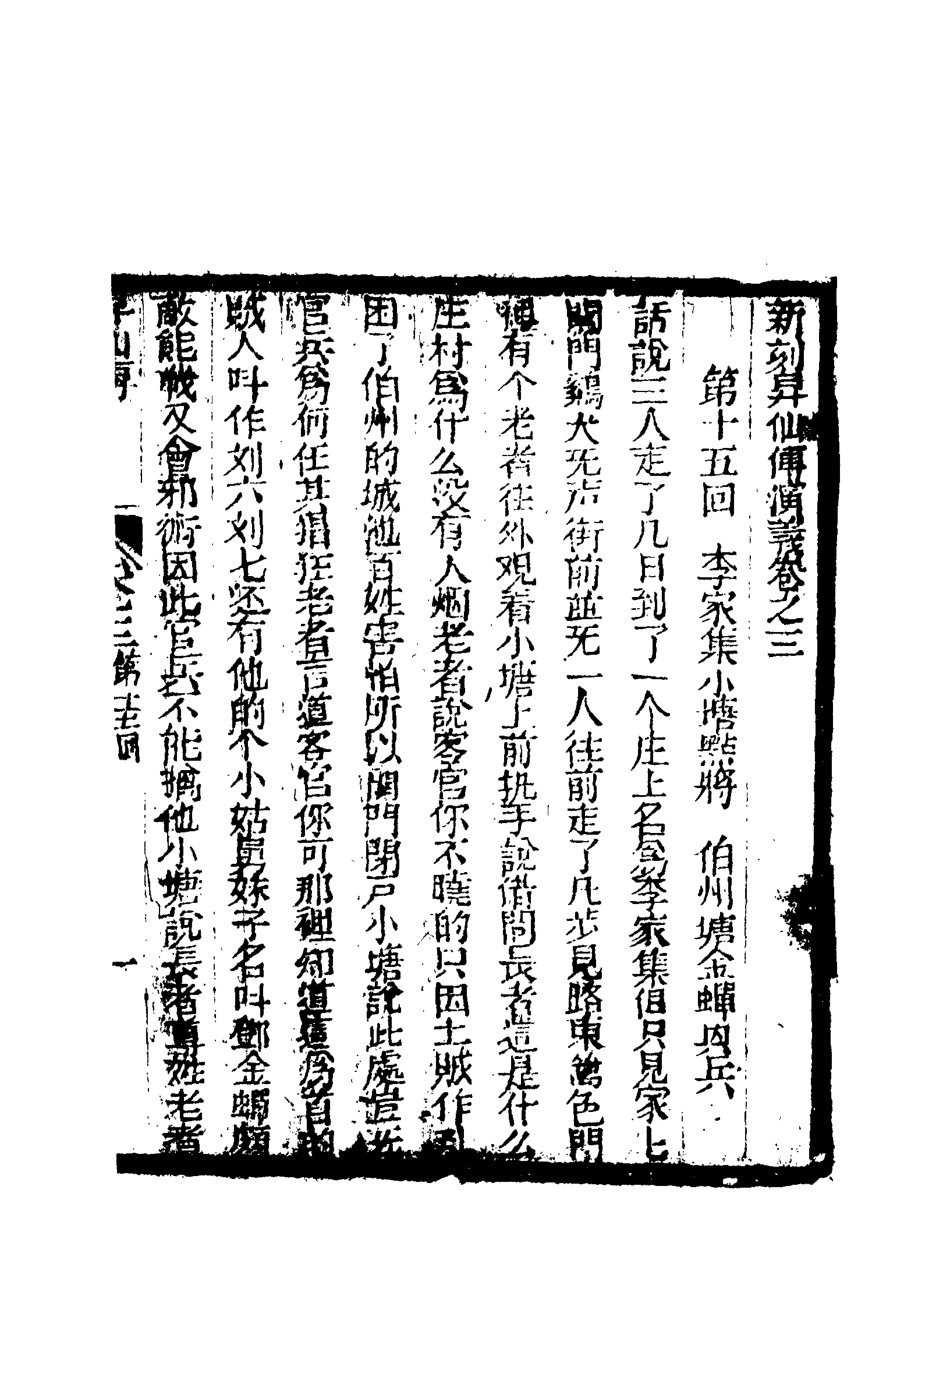 新刻昇仙傳演義卷之三
第十五回　李家集小塘點將　伯州塘金蟬因兵
話說三人走了几日到了一个庄上名為李家集但只見家七
關門鷄犬无声街前並无一人往前走了几步見路東篱色門
裡有个老者往外观看小塘上前执手說借問長者這是什么
庄村為什么没有人烟老者說客官你不曉的只因土賊作乱
困了伯州的城池百姓害怕所以關門閉戶小塘說此處豈无
官兵為何任其猖狂老者言道客官你可那裡知道這為首的
賊人叫作刘六刘七还有他的个小姑舅妹子名叫鄧金蟬頗
敵能战又會邪術因此官兵不能擒他小塘說長者尊姓老者
昇仙傳　卷之三第十五回　一